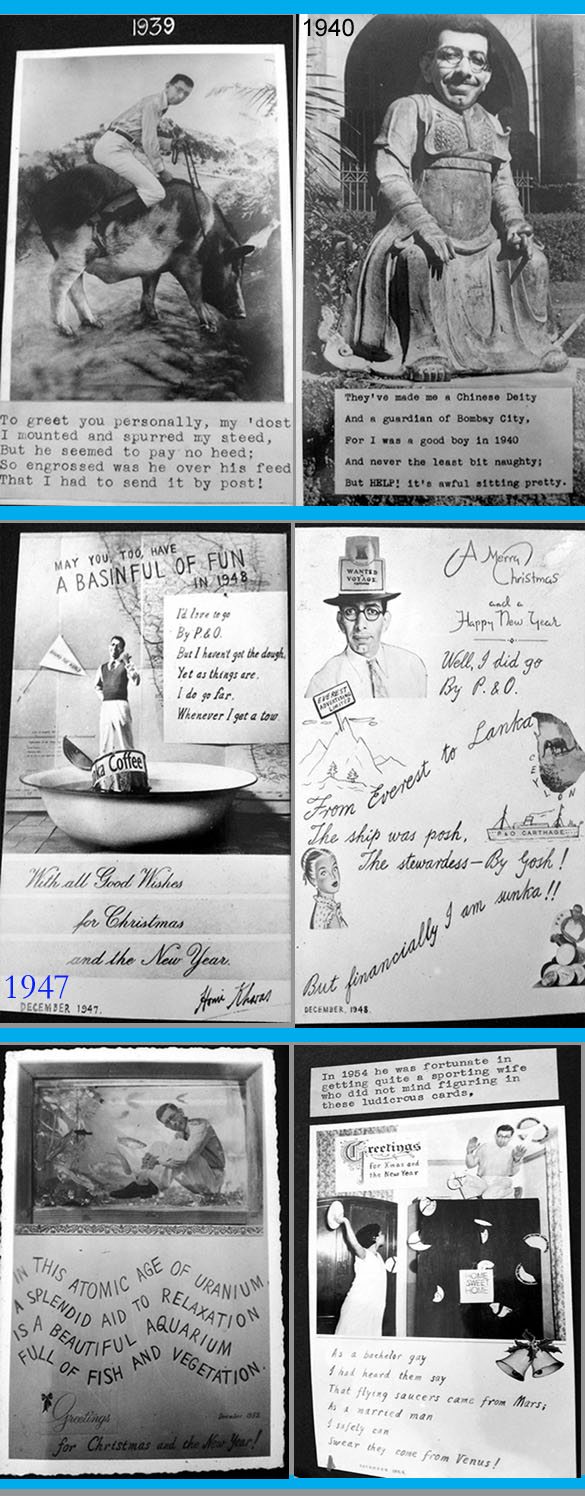 1939
To greet you personally, my 'dost
I mounted and spurred my steed,
But he seemed to pay no heed;
So engrossed was he over his feed
That I had to send it by post!
1940
They've made me a Chinese Deity
And a guardian of Bombay City,
For I was a good boy in 1940
And never the least bit naughty;
But HELP! it's awful sitting pretty.
MAY YOU, TOO, HAVE
A BASINFUL OF FUN
IN 1948
I'd love to go
By P.& O.
But I haven't got the dough,
Yet as things are,
I do go far,
Whenever I get a tow.
ROUND THE WORLD
ka Coffee
With all Good Wishes
for Christmas
and the New Year.
1947
DECEMBER 1947.
Homi Kharas
WANTED
VOYAGE
A Merry
Christmas
and a
Happy New Year
Well, I did go
By P. & O.
EVEREST
ADVERTISING
LIMITED
From Everest to Lanka
CEYLON
The ship was posh,
P & O CARTHAGE
The stewardess - By Gosh!
But financially I am sunka!!
DECEMBER, 1948.
IN THIS ATOMIC AGE OF URANIUM,
A SPLENDID AID TO RELAXATION
IS A BEAUTIFUL AQUARIUM
FULL OF FISH AND VEGETATION.
Greetings
for Christmas and the New Year!
In 1954 he was fortunate in
getting quite a sporting wife
who did not mind figuring in
these ludicrous cards.
Greetings
for Xmas and
the New Year
HOME
SWEET
HOME
As a bachelor gay
I had heard them say
That flying saucers came from Mars;
As a married man
I safely can
Swear they come from Venus!